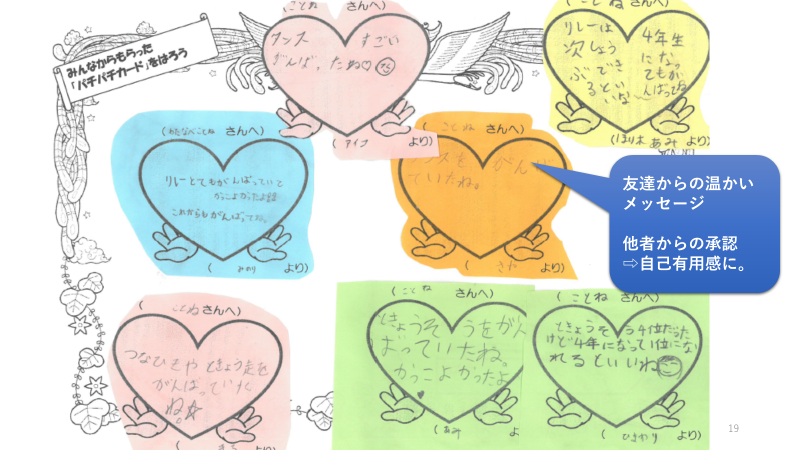 みんなからもらった
「パチパチカード」をはろう
ことね さんへ
ダンス すごい
がんば、たね♡
アイコ より)
ことね さんへ)
リレーは
次しょう
ぶできる
といいな
4年生
になっ
てもが
んばってね
(ほり木 あみ より)
(わたなべことね さんへ)
リレーとてもがんばっていて
かっこよかったよ
これからもがんばってね。
( みのり より)
( ことね さんへ)
ダンスをがんば
ていたね。
( さな より)
友達からの温かい
メッセージ
他者からの承認
⇨自己有用感に。
( ことねさんへ)
つなひきや ときょう走を
がんばっていた
ね☆。
( ことね さんへ)
ときょうそうをがん
ばっていたね。
かっこよかったよ
♥
( あみ よ
( ことね さんへ)
ときょうそう4位だった
けど4年になって1位にな
れるといいね
( ひまわり より)
19